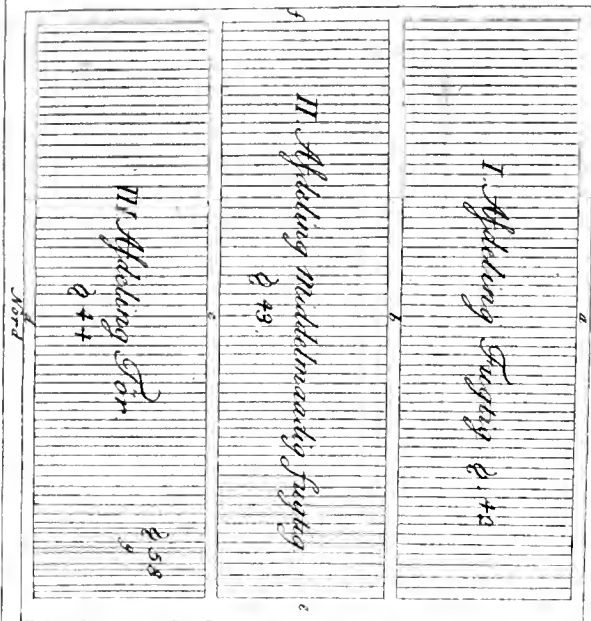 a
I. Afdeling Fugtig § 42
b
II Afdeling Middelmaadig fugtig
§ 43.
c
III. Afdeling Tör
§ 44
§ 58
y
d
Nord
f
e